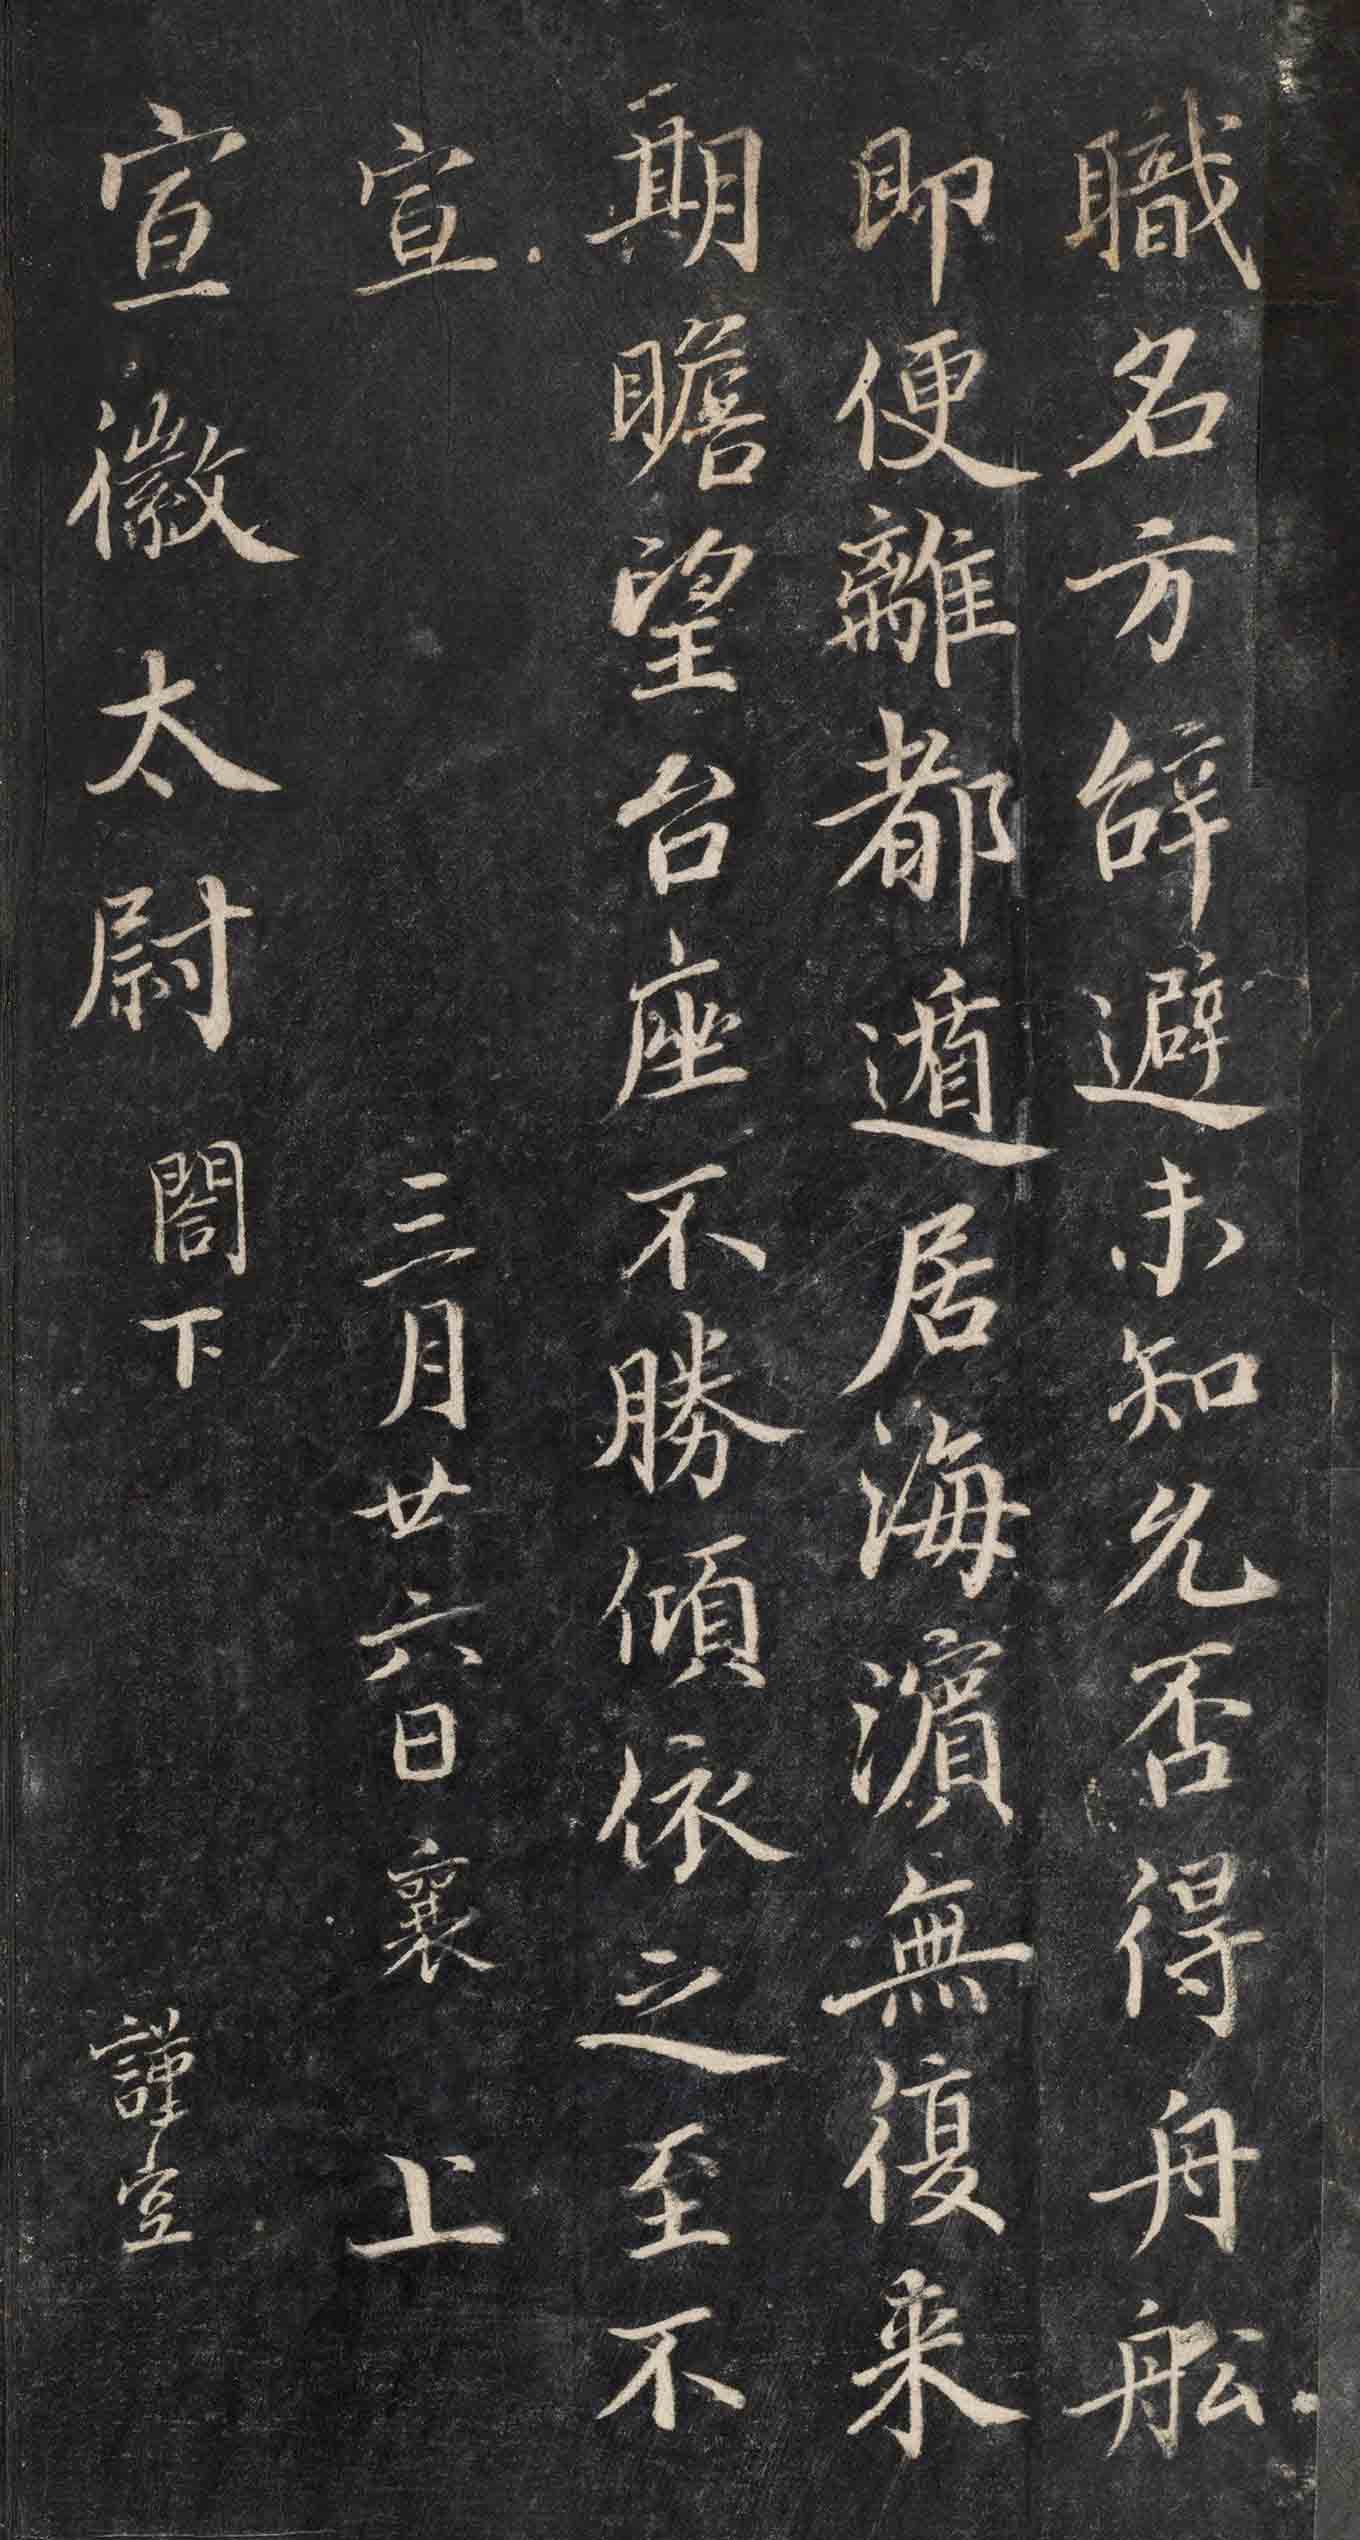 職名方辤避未知允否得舟舩
即便離都遁居海濵無復来
期瞻望台座不勝傾依之至不
宣 三月廿六日襄 上
宣徽太尉 閤下 謹空